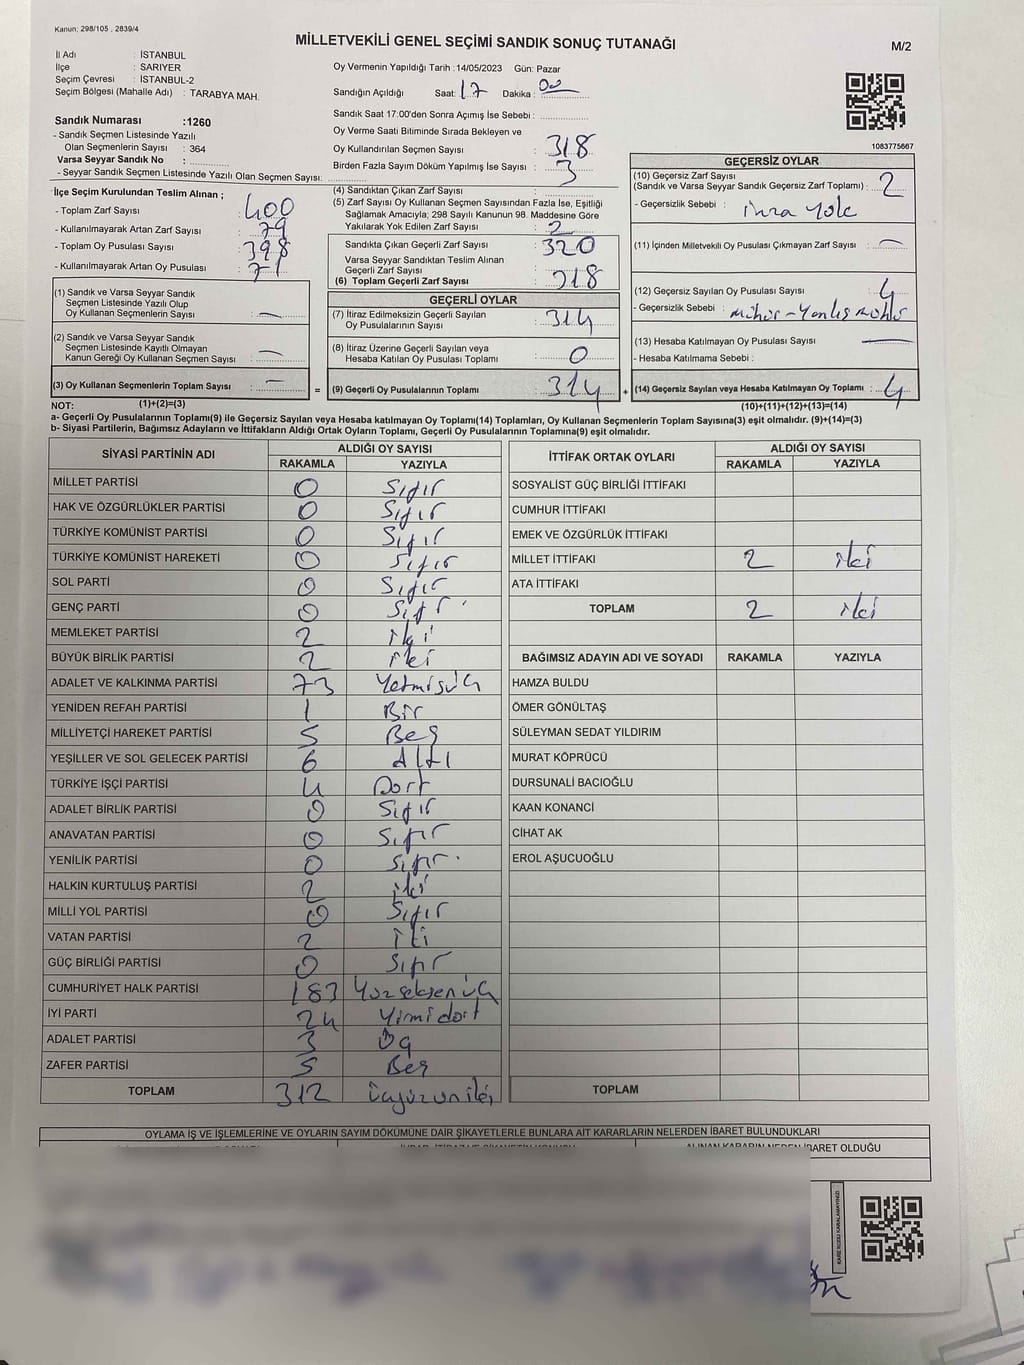 Kanun: 298/105 , 2839/4
MİLLETVEKİLİ GENEL SEÇİMİ SANDIK SONUÇ TUTANAĞI
M/2
İl Adı : İSTANBUL
İlçe : SARIYER
Seçim Çevresi : İSTANBUL-2
Seçim Bölgesi (Mahalle Adı) : TARABYA MAH.
Oy Vermenin Yapıldığı Tarih :14/05/2023 Gün: Pazar
Sandığın Açıldığı Saat: 17 Dakika : 00
Sandık Numarası :1260
- Sandık Seçmen Listesinde Yazılı
Olan Seçmenlerin Sayısı : 364
Varsa Seyyar Sandık No :
- Seyyar Sandık Seçmen Listesinde Yazılı Olan Seçmen Sayısı:
Sandık Saat 17:00'den Sonra Açımış İse Sebebi :
Oy Verme Saati Bitiminde Sırada Bekleyen ve
Oy Kullandırılan Seçmen Sayısı : 318
Birden Fazla Sayım Döküm Yapılmış İse Sayısı : 3
1083775667
İlçe Seçim Kurulundan Teslim Alınan ;
- Toplam Zarf Sayısı : 400
- Kullanılmayarak Artan Zarf Sayısı : 79
- Toplam Oy Pusulası Sayısı : 398
- Kullanılmayarak Artan Oy Pusulası : 71
(1) Sandık ve Varsa Seyyar Sandık
Seçmen Listesinde Yazılı Olup
Oy Kullanan Seçmenlerin Sayısı : —
(2) Sandık ve Varsa Seyyar Sandık
Seçmen Listesinde Kayıtlı Olmayan
Kanun Gereği Oy Kullanan Seçmen Sayısı : —
(3) Oy Kullanan Seçmenlerin Toplam Sayısı : —
(1)+(2)=(3)
(4) Sandıktan Çıkan Zarf Sayısı :
(5) Zarf Sayısı Oy Kullanan Seçmen Sayısından Fazla İse, Eşitliği
Sağlamak Amacıyla; 298 Sayılı Kanunun 98. Maddesine Göre
Yakılarak Yok Edilen Zarf Sayısı : 2
Sandıkta Çıkan Geçerli Zarf Sayısı : 320
Varsa Seyyar Sandıktan Teslim Alınan
Geçerli Zarf Sayısı
(6) Toplam Geçerli Zarf Sayısı : 318
GEÇERLİ OYLAR
(7) İtiraz Edilmeksizin Geçerli Sayılan
Oy Pusulalarının Sayısı : 314
(8) İtiraz Üzerine Geçerli Sayılan veya
Hesaba Katılan Oy Pusulası Toplamı : 0
= (9) Geçerli Oy Pusulalarının Toplamı : 314 +
GEÇERSİZ OYLAR
(10) Geçersiz Zarf Sayısı
(Sandık ve Varsa Seyyar Sandık Geçersiz Zarf Toplamı) : 2
- Geçersizlik Sebebi : imza yok
(11) İçinden Milletvekili Oy Pusulası Çıkmayan Zarf Sayısı : —
(12) Geçersiz Sayılan Oy Pusulası Sayısı : 4
- Geçersizlik Sebebi : mühür-Yanlış mühür
(13) Hesaba Katılmayan Oy Pusulası Sayısı : —
- Hesaba Katılmama Sebebi :
(14) Geçersiz Sayılan veya Hesaba Katılmayan Oy Toplamı : 4
(10)+(11)+(12)+(13)=(14)
NOT:
a- Geçerli Oy Pusulalarının Toplamı(9) ile Geçersiz Sayılan veya Hesaba katılmayan Oy Toplamı(14) Toplamları, Oy Kullanan Seçmenlerin Toplam Sayısına(3) eşit olmalıdır. (9)+(14)=(3)
b- Siyasi Partilerin, Bağımsız Adayların ve İttifakların Aldığı Ortak Oyların Toplamı, Geçerli Oy Pusulalarının Toplamına(9) eşit olmalıdır.
SİYASİ PARTİNİN ADI ALDIĞI OY SAYISI
RAKAMLA YAZIYLA
MİLLET PARTİSİ 0 Sıfır
HAK VE ÖZGÜRLÜKLER PARTİSİ 0 Sıfır
TÜRKİYE KOMÜNİST PARTİSİ 0 Sıfır
TÜRKİYE KOMÜNİST HAREKETİ 0 Sıfır
SOL PARTİ 0 Sıfır
GENÇ PARTİ 0 Sıfır
MEMLEKET PARTİSİ 2 iki
BÜYÜK BİRLİK PARTİSİ 2 iki
ADALET VE KALKINMA PARTİSİ 73 Yetmişüç
YENİDEN REFAH PARTİSİ 1 Bir
MİLLİYETÇİ HAREKET PARTİSİ 5 Beş
YEŞİLLER VE SOL GELECEK PARTİSİ 6 Altı
TÜRKİYE İŞÇİ PARTİSİ 4 Dort
ADALET BİRLİK PARTİSİ 0 Sıfır
ANAVATAN PARTİSİ 0 Sıfır
YENİLİK PARTİSİ 0 Sıfır
HALKIN KURTULUŞ PARTİSİ 2 iki
MİLLİ YOL PARTİSİ 0 Sıfır
VATAN PARTİSİ 2 İki
GÜÇ BİRLİĞİ PARTİSİ 0 Sıfır
CUMHURİYET HALK PARTİSİ 183 Yüzseksenüç
İYİ PARTİ 24 Yirmi dort
ADALET PARTİSİ 3 Üç
ZAFER PARTİSİ 5 Beş
TOPLAM 312 üçyüzoniki
İTTİFAK ORTAK OYLARI ALDIĞI OY SAYISI
RAKAMLA YAZIYLA
SOSYALİST GÜÇ BİRLİĞİ İTTİFAKI
CUMHUR İTTİFAKI
EMEK VE ÖZGÜRLÜK İTTİFAKI
MİLLET İTTİFAKI 2 iki
ATA İTTİFAKI
TOPLAM 2 iki
BAĞIMSIZ ADAYIN ADI VE SOYADI RAKAMLA YAZIYLA
HAMZA BULDU
ÖMER GÖNÜLTAŞ
SÜLEYMAN SEDAT YILDIRIM
MURAT KÖPRÜCÜ
DURSUNALİ BACIOĞLU
KAAN KONANCİ
CİHAT AK
EROL AŞUCUOĞLU
TOPLAM
OYLAMA İŞ VE İŞLEMLERİNE VE OYLARIN SAYIM DÖKÜMÜNE DAİR ŞİKAYETLERLE BUNLARA AİT KARARLARIN NELERDEN İBARET BULUNDUKLARI
ALINAN KARARIN NEDEN İBARET OLDUĞU
KARE KODU KARALAMAYINIZ!